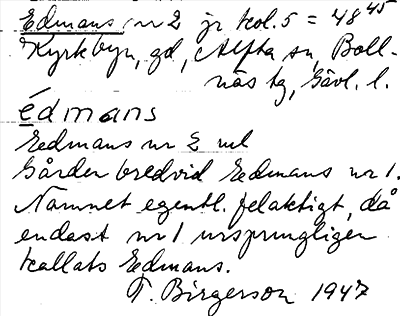 Edmans nr 2 jr kol. 5 = 48 45
Kyrkbyn, gd, Alfta sn, Boll-
näs tg, Gävl. l.
édmans
Eedmans nr 2 ml
Gården bredvid Eedmans nr 1.
Namnet egentl. felaktigt, då
endast nr 1 ursprungligen
kallats Eedmans.
T. Birgerson 1947